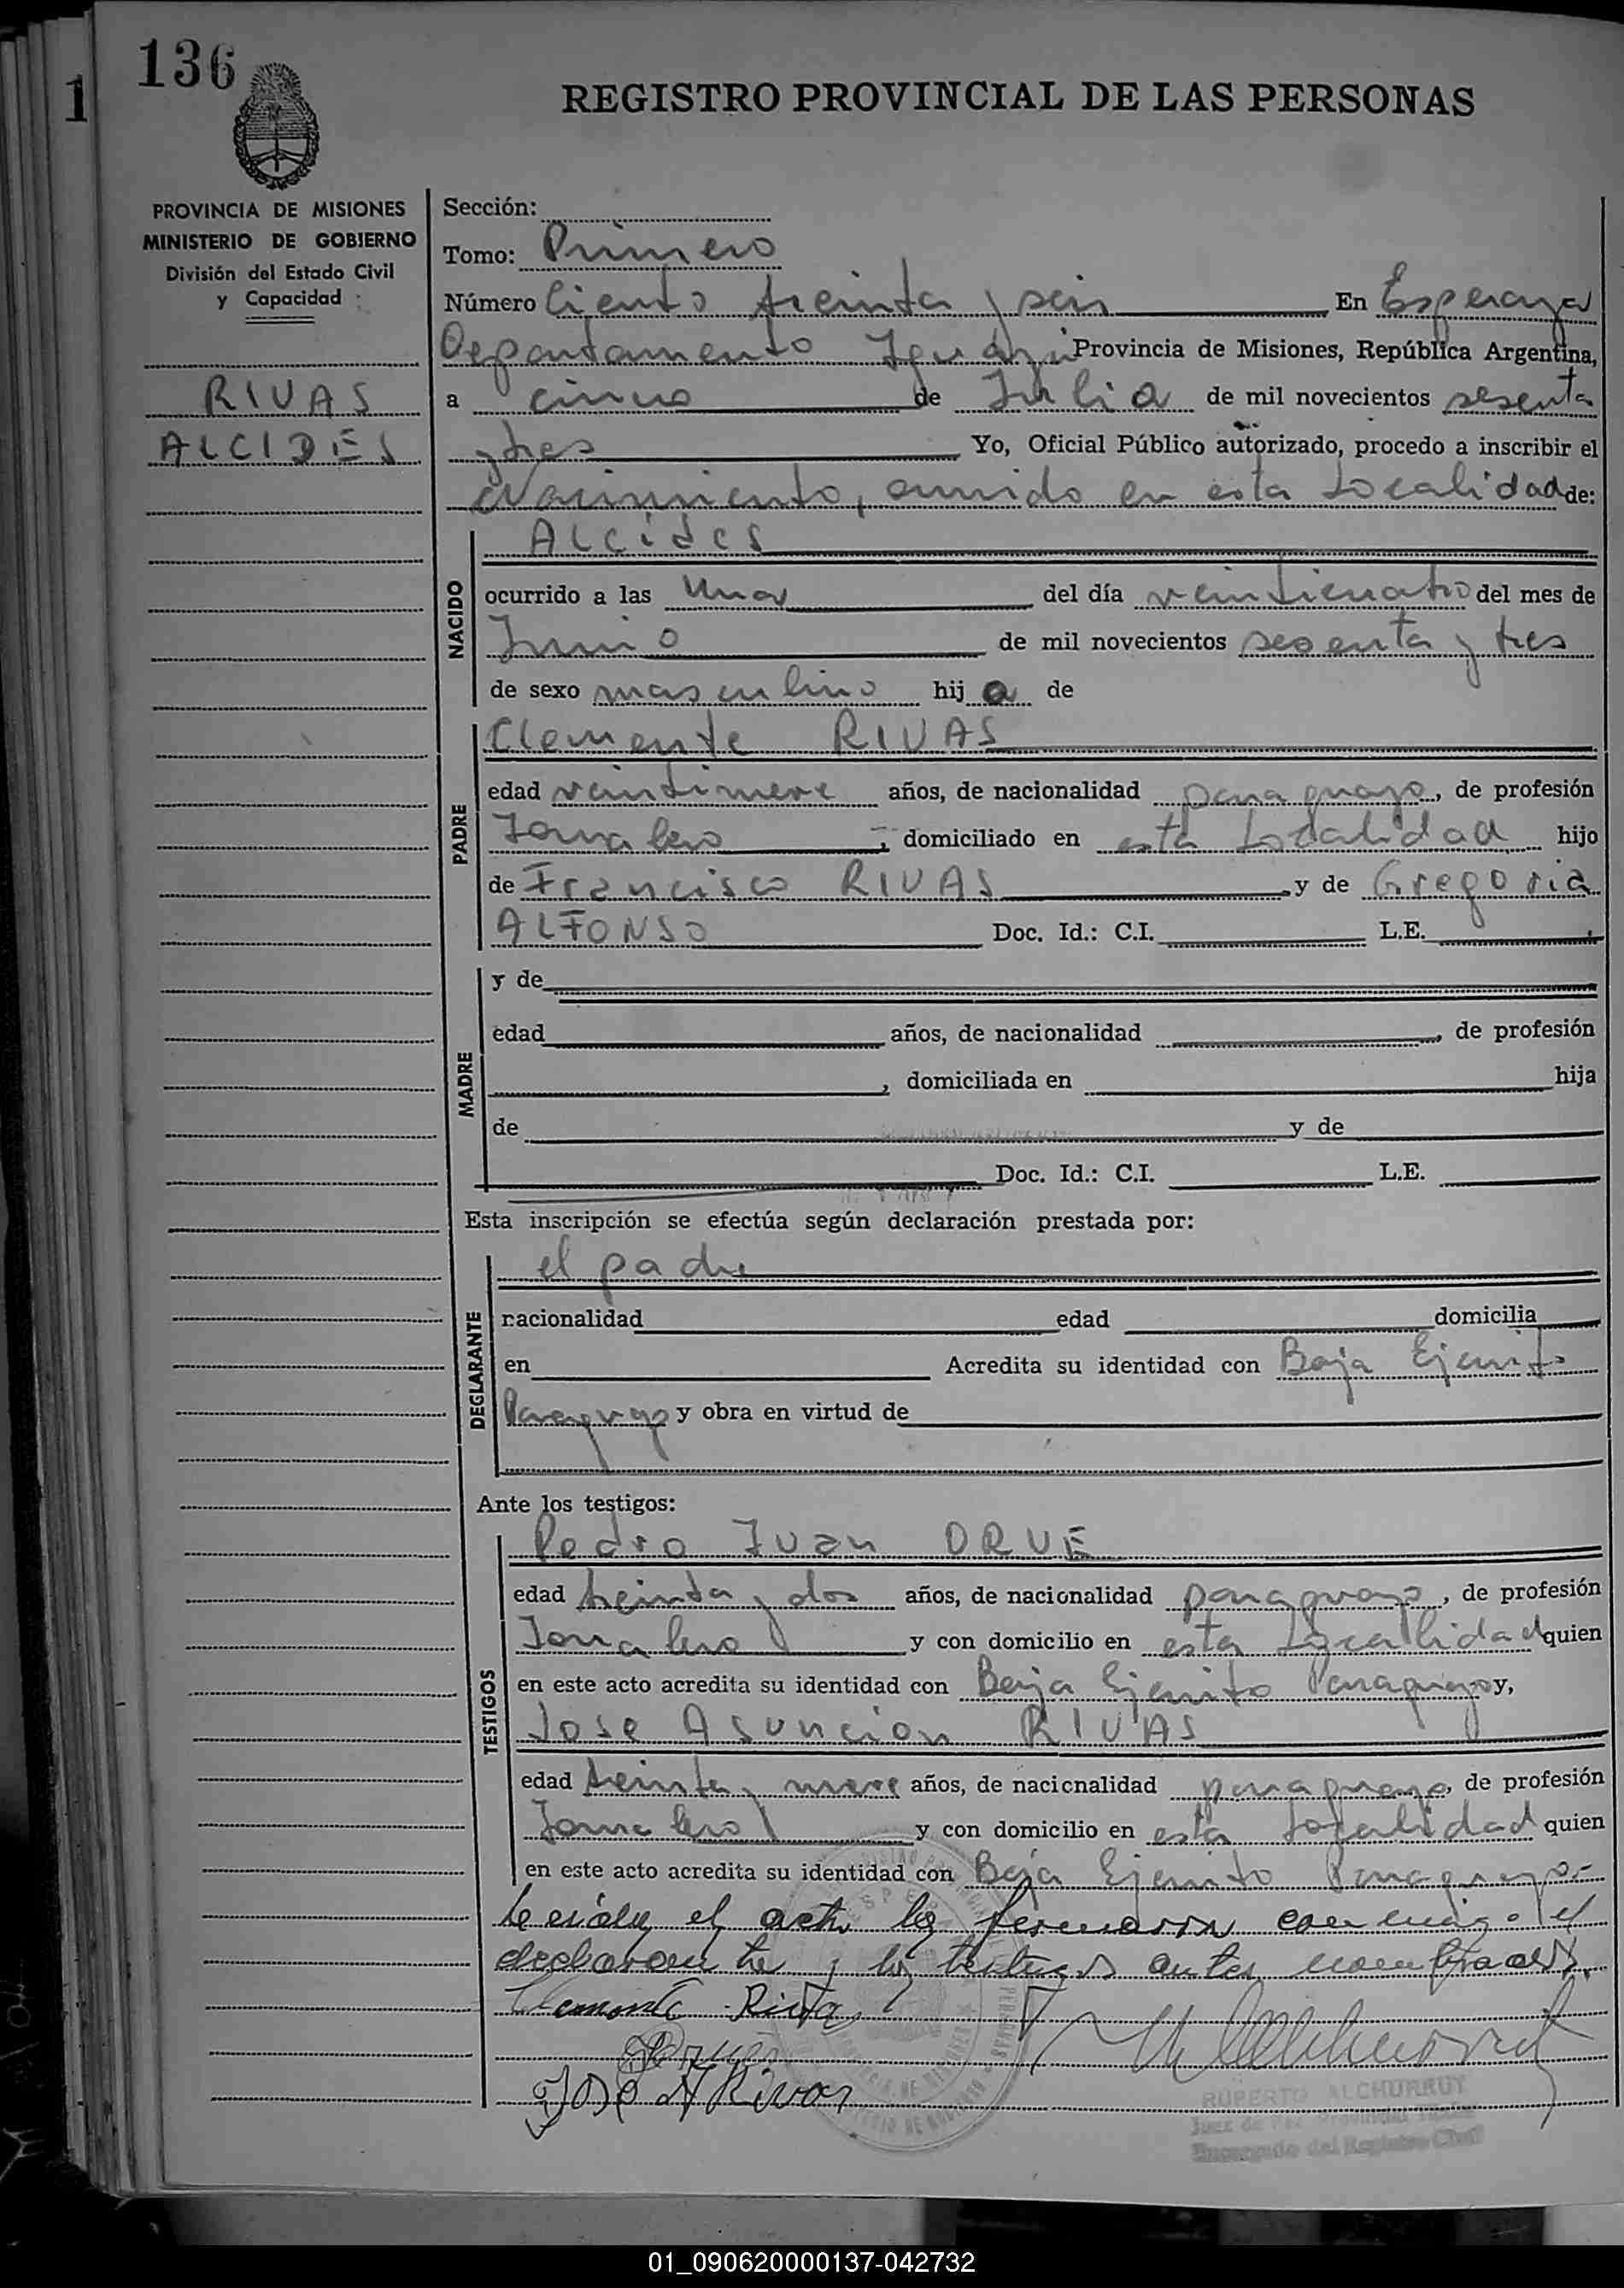 136
1
REGISTRO PROVINCIAL DE LAS PERSONAS
PROVINCIA DE MISIONES
MINISTERIO DE GOBIERNO
División del Estado Civil
y Capacidad
RIVAS
ALCIDES
Sección:
Tomo: Primero
Número Ciento treinta y seis En Esperanza
Departamento Iguazú Provincia de Misiones, República Argentina,
a cinco de Julio de mil novecientos sesenta
y tres Yo, Oficial Público autorizado, procedo a inscribir el
Nacimiento, ocurrido en esta Localidad de:
NACIDO
Alcides
ocurrido a las Una del día veinticuatro del mes de
Junio de mil novecientos sesenta y tres
de sexo masculino hij o de
PADRE
Clemente RIVAS
edad veintinueve años, de nacionalidad paraguayo, de profesión
Jornalero, domiciliado en esta Localidad hijo
de Francisco RIVAS y de Gregoria
ALFONSO Doc. Id.: C.I. L.E.
MADRE
y de
edad años, de nacionalidad , de profesión
, domiciliada en hija
de y de
Doc. Id.: C.I. L.E.
Esta inscripción se efectúa según declaración prestada por:
DECLARANTE
el padre
nacionalidad edad domicilia
en Acredita su identidad con Baja Ejercito
Paraguayo y obra en virtud de
Ante los testigos:
TESTIGOS
Pedro Juan ORUE
edad treinta y dos años, de nacionalidad paraguayo, de profesión
Jornalero y con domicilio en esta Localidad quien
en este acto acredita su identidad con Baja Ejercito Paraguayo y,
Jose Asuncion RIVAS
edad treinta y nueve años, de nacionalidad paraguayo, de profesión
Jornalero y con domicilio en esta Localidad quien
en este acto acredita su identidad con Baja Ejercito Paraguayo.-
Leida el acta la firmaron conmigo el
declarante y los testigos antes nombrados.
Clemente Rivas
Jose A Rivas
RUPERTO ALCHURRUT
Juez de Paz Provincial Titular
Encargado del Registro Civil
01_090620000137-042732